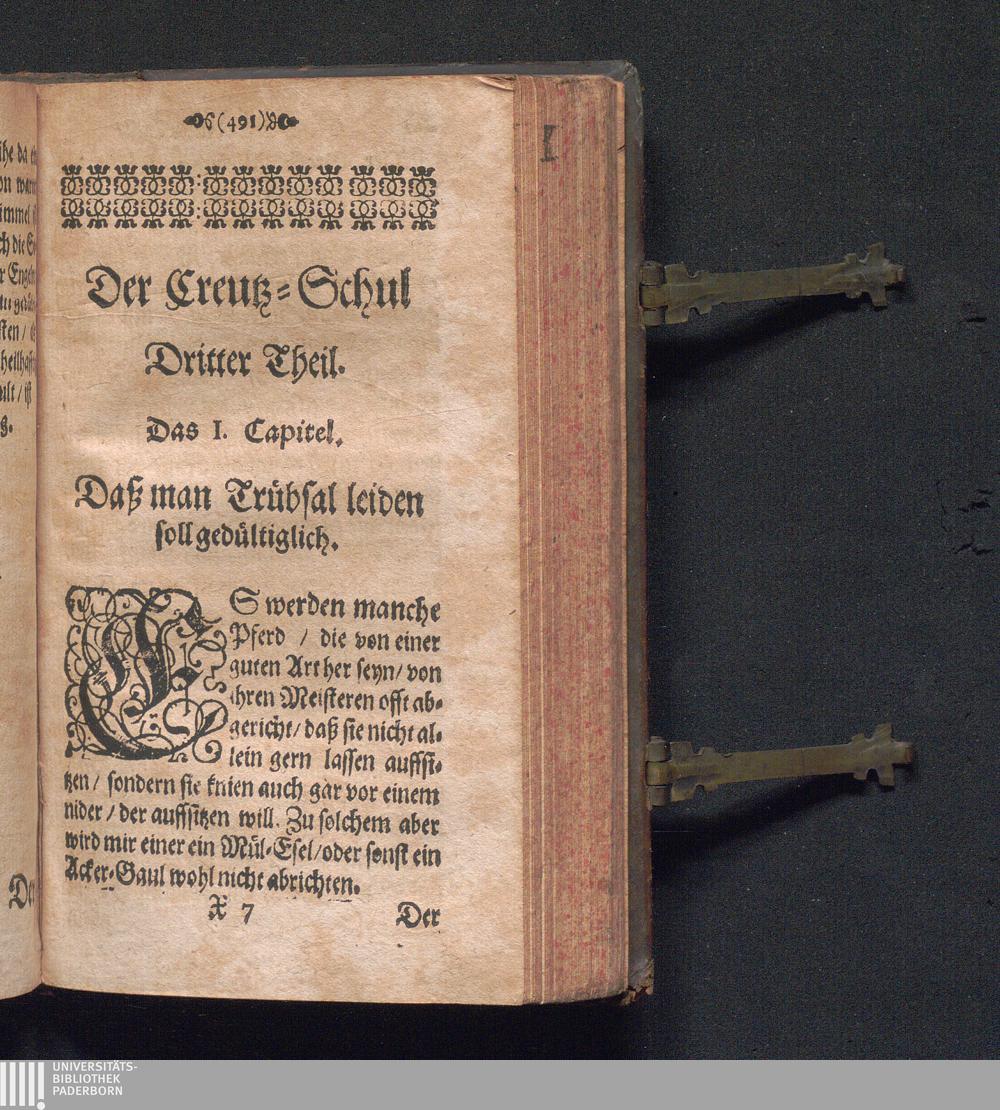 (491)
Der Creutz=Schul
Dritter Theil.
Das I. Capitel.
Daß man Trübsal leiden
soll gedültiglich.
ES werden manche
Pferd / die von einer
guten Art her seyn/ von
ihren Meisteren offt ab=
gericht/ daß sie nicht al=
lein gern lassen auffsi=
tzen / sondern sie knien auch gar vor einem
nider / der auffsitzen will. Zu solchem aber
wird mir einer ein Mül=Esel/oder sonst ein
Acker=Gaul wohl nicht abrichten.
X 7 Der
De
UNIVERSITÄTS-
BIBLIOTHEK
PADERBORN